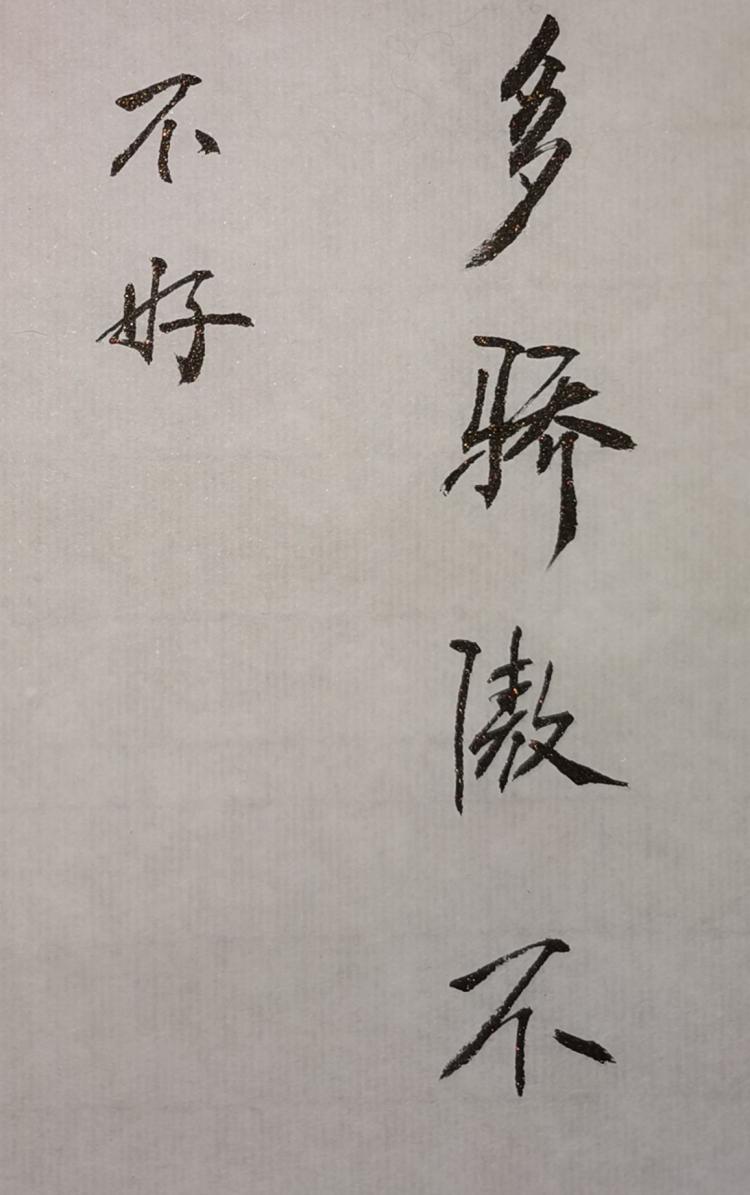 多骄傲不
不好